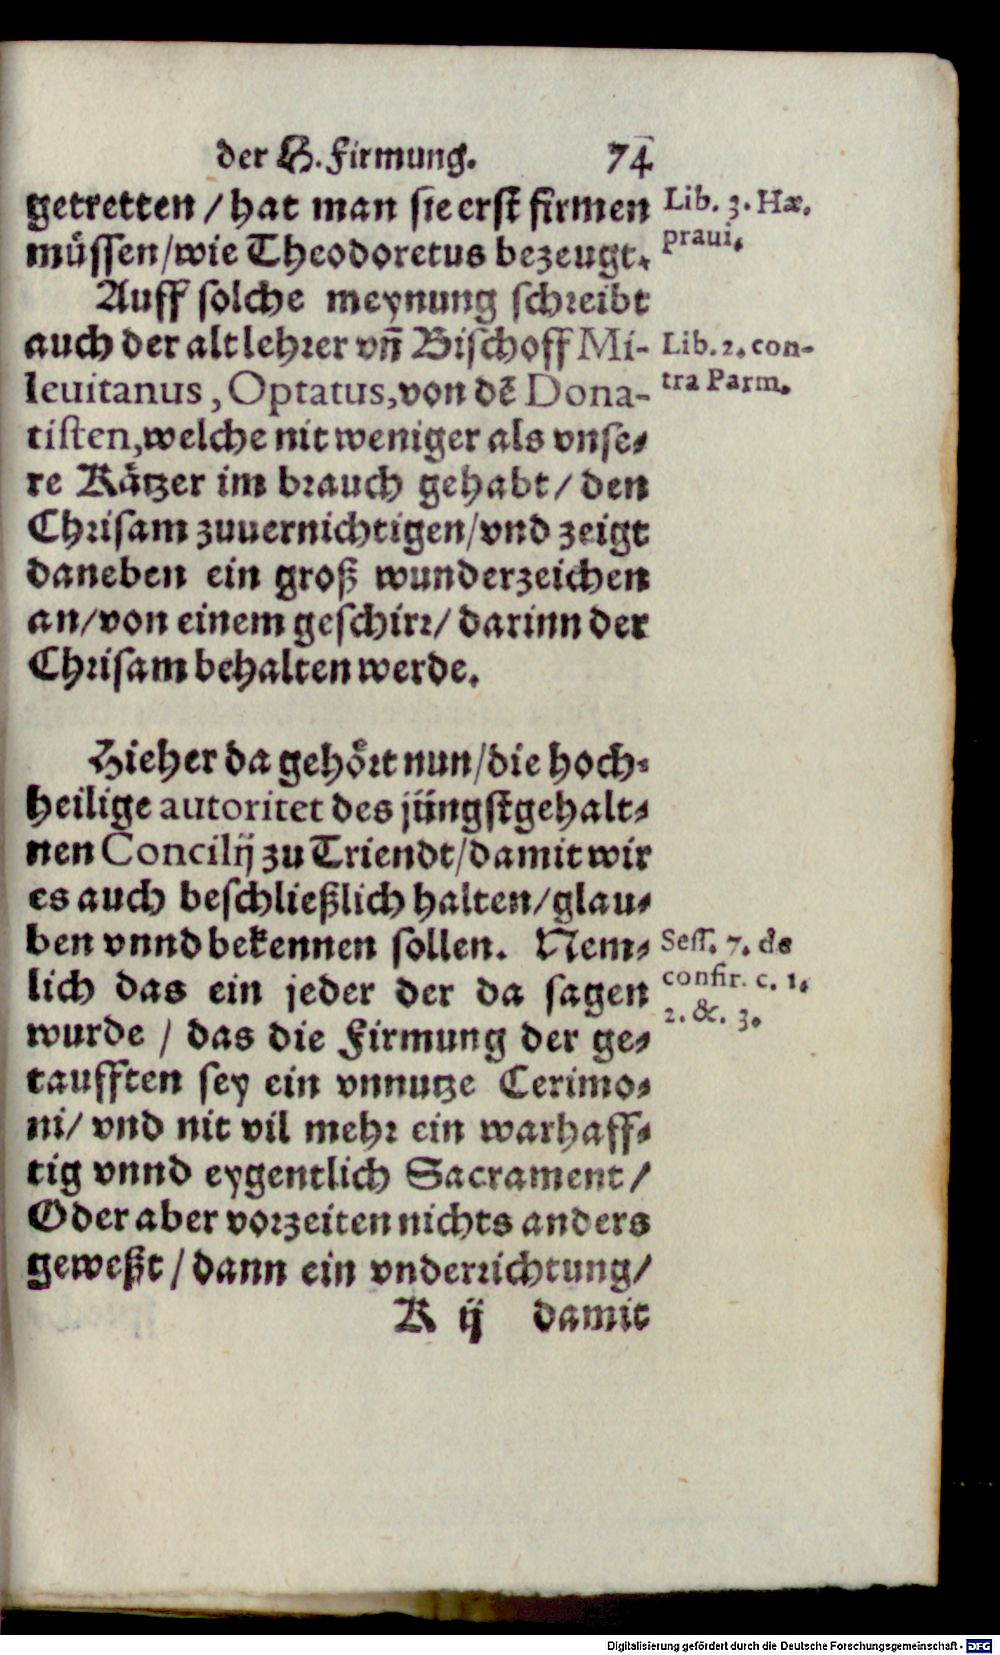 der H. Firmung. 74
getretten / hat man sie erst firmen
müssen/wie Theodoretus bezeugt.
Lib. 3. Hæ.
praui.
Auff solche meynung schreibt
auch der alt lehrer vn̄ Bischoff Mi-
leuitanus, Optatus, von dē Dona-
tisten, welche nit weniger als vnse-
re Kätzer im brauch gehabt / den
Chrisam zuuernichtigen/vnd zeigt
daneben ein groß wunderzeichen
an/von einem geschirr/ darinn der
Chrisam behalten werde.
Lib. 2. con-
tra Parm.
Hieher da gehört nun/die hoch-
heilige autoritet des jüngstgehalt-
nen Concilij zu Triendt/damit wir
es auch beschließlich halten/glau-
ben vnnd bekennen sollen. Nem-
lich das ein jeder der da sagen
wurde / das die Firmung der ge-
taufften sey ein vnnutze Cerimo-
ni/ vnd nit vil mehr ein warhaff-
tig vnnd eygentlich Sacrament/
Oder aber vorzeiten nichts anders
geweßt / dann ein vnderrichtung/
Sess. 7. de
confir. c. 1.
2. &. 3.
K ij damit
Digitalisierung gefördert durch die Deutsche Forschungsgemeinschaft - DFG